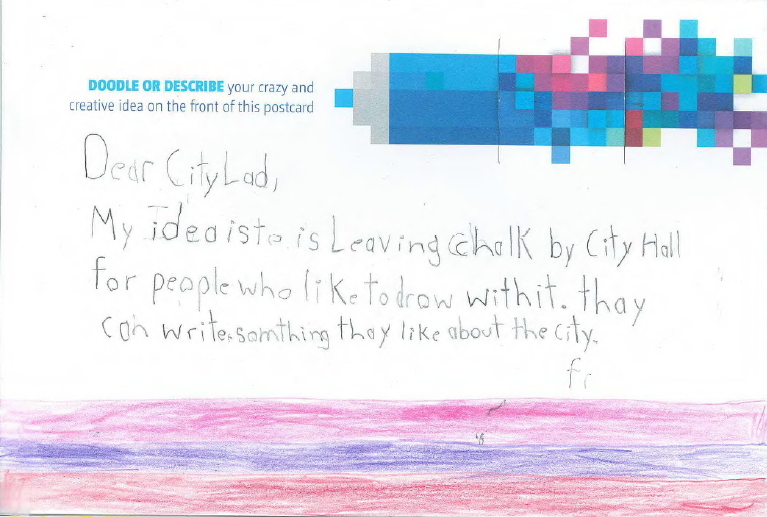 DOODLE OR DESCRIBE your crazy and
creative idea on the front of this postcard
Dear City Lad,
My idea is to is Leaving chalk by City Hall
for people who like to draw with it. thay
can write somthing thay like about the city.
fr